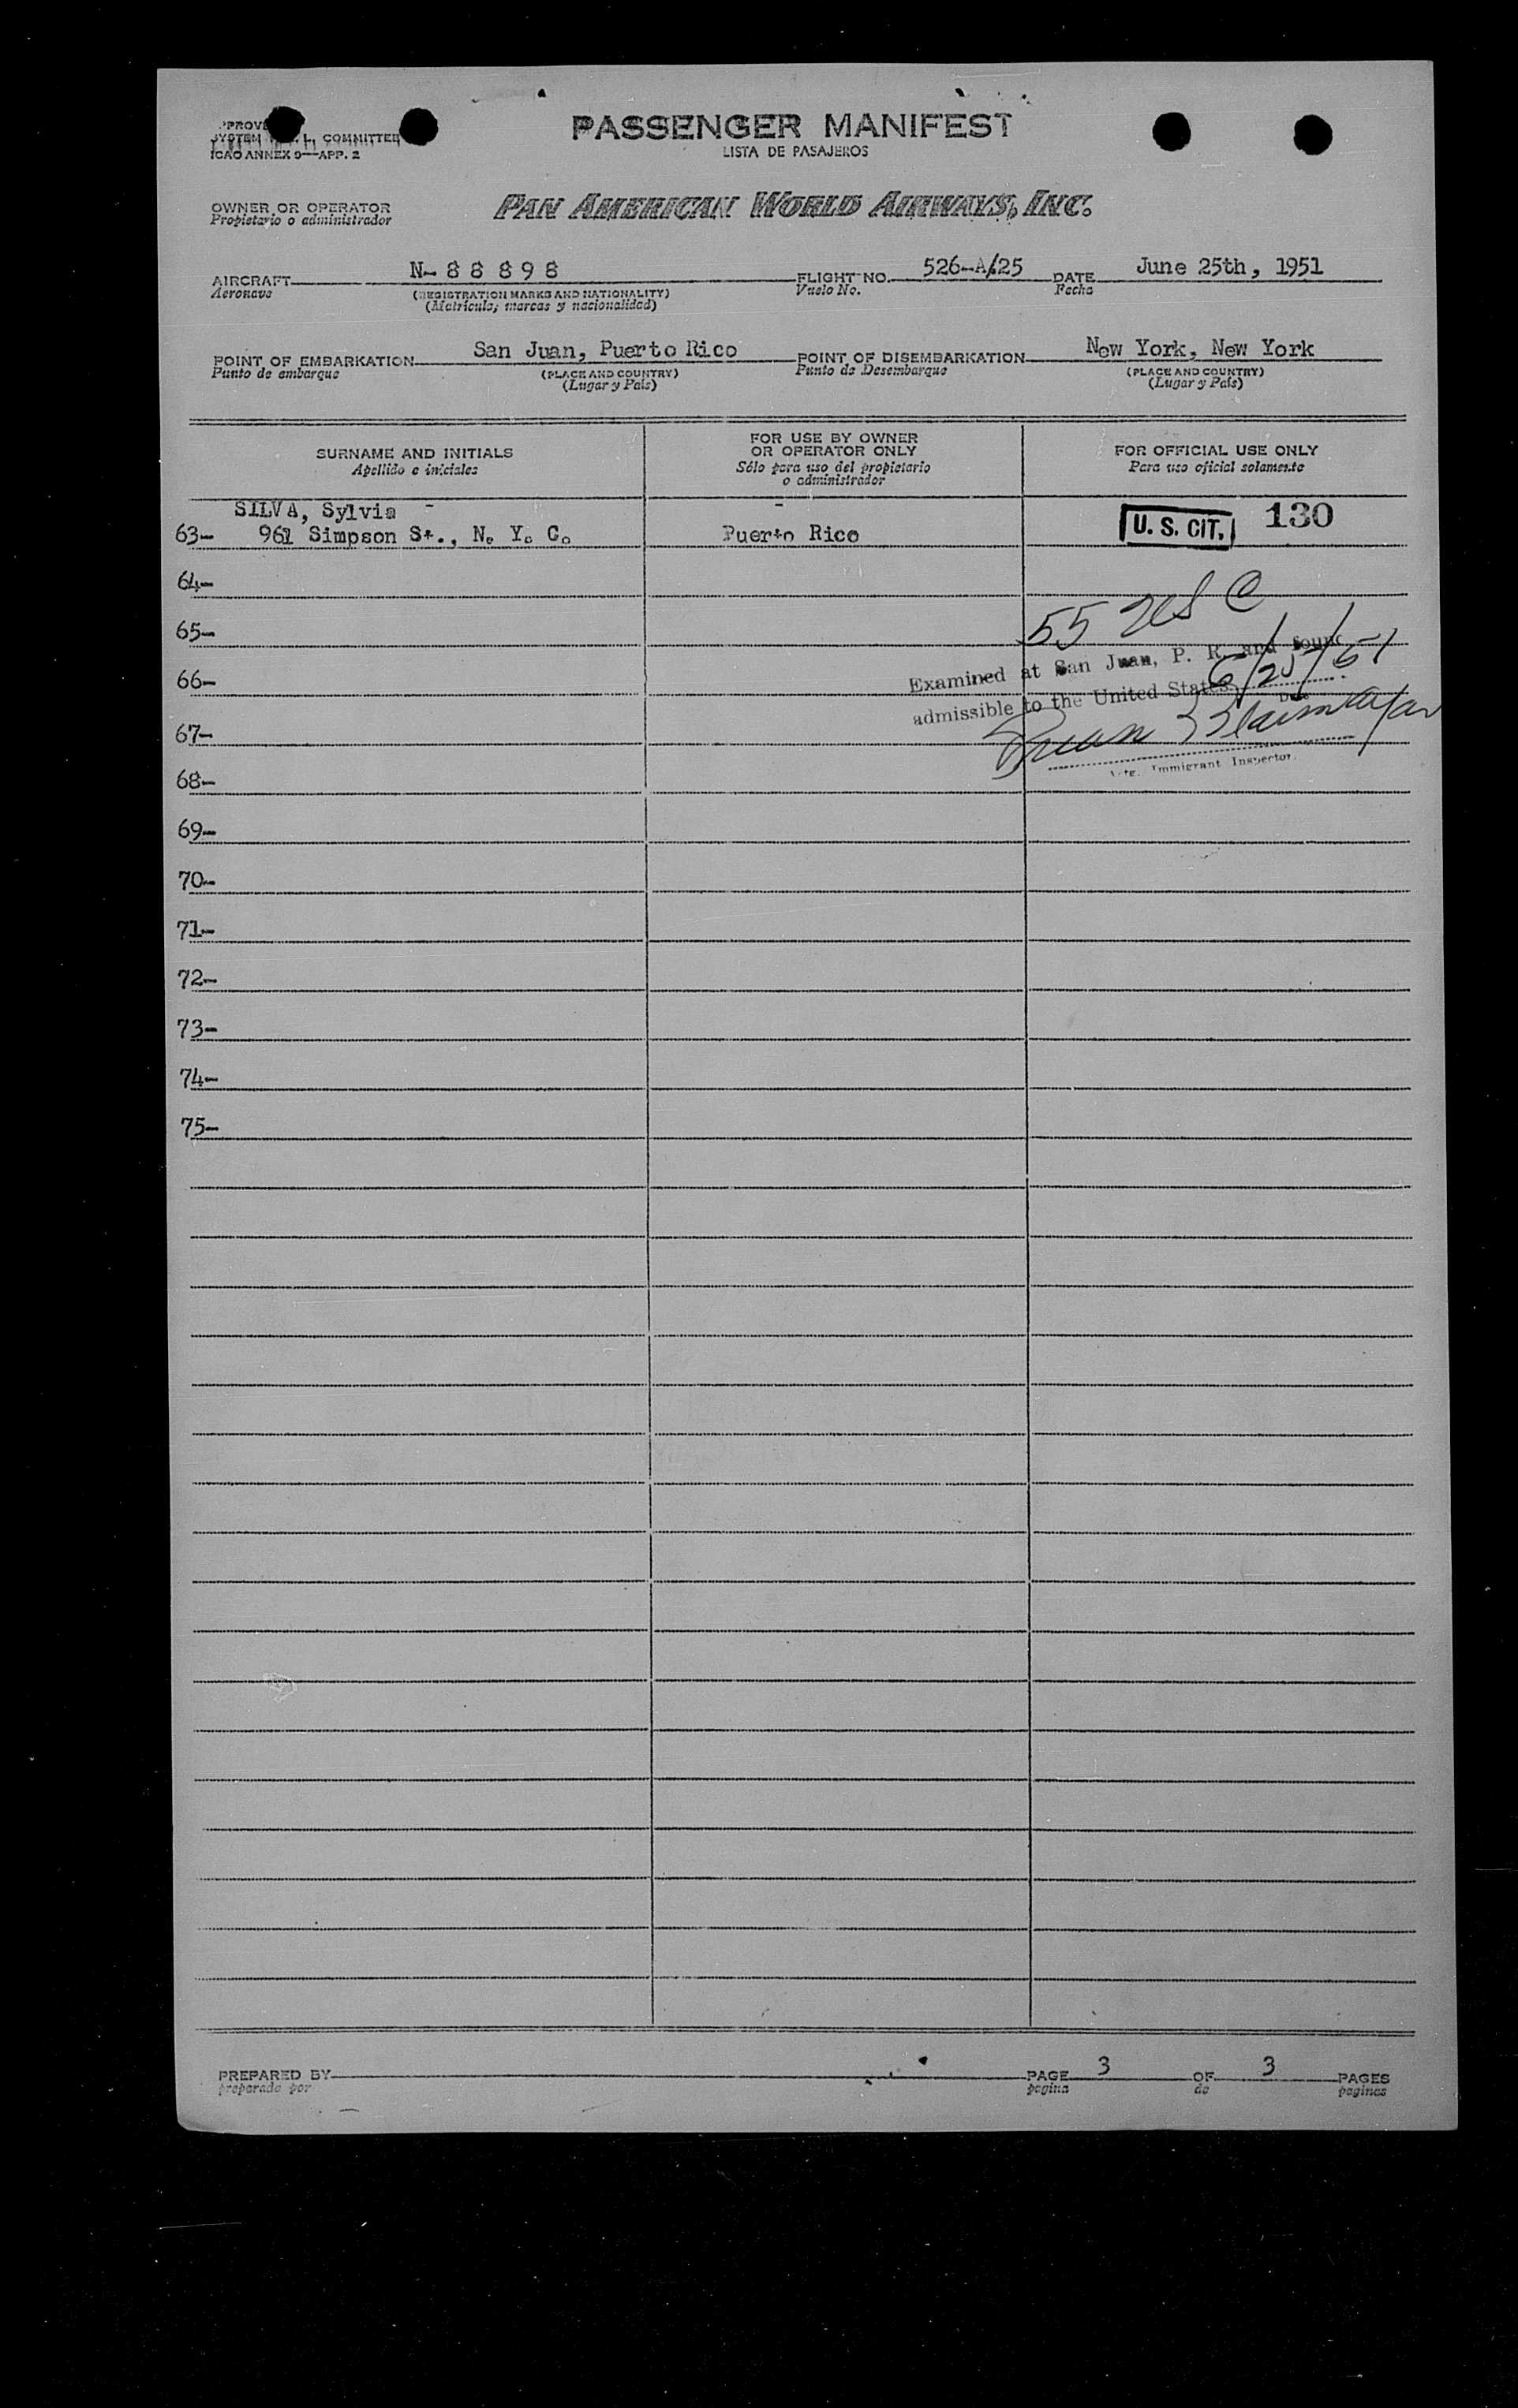 PASSENGER MANIFEST
LISTA DE PASAJEROS
SYSTEM COMMITTEE
ICAO ANNEX 9—APP. 2
OWNER OR OPERATOR
Propietario o administrador
PAN AMERICAN WORLD AIRWAYS, INC.
AIRCRAFT N-88898 FLIGHT NO. 526-A/25 DATE June 25th, 1951
Aeronave (REGISTRATION MARKS AND NATIONALITY) Vuelo No. Fecha
(Matrícula, marcas y nacionalidad)
POINT OF EMBARKATION San Juan, Puerto Rico POINT OF DISEMBARKATION New York, New York
Punto de embarque (PLACE AND COUNTRY) Punto de Desembarque (PLACE AND COUNTRY)
(Lugar y País) (Lugar y País)
SURNAME AND INITIALS
Apellido e iniciales
FOR USE BY OWNER
OR OPERATOR ONLY
Sólo para uso del propietario
o administrador
FOR OFFICIAL USE ONLY
Para uso oficial solamente
SILVA, Sylvia - -
63- 961 Simpson St., N. Y. C. Puerto Rico U. S. CIT. 130
64-
65- 55 USC
66- Examined at San Juan, P. R. and found
admissible to the United States. 6/25/51
Date
67-
Immigrant Inspector.
68-
69-
70-
71-
72-
73-
74-
75-
PREPARED BY PAGE 3 OF 3 PAGES
preparado por pagina de paginas